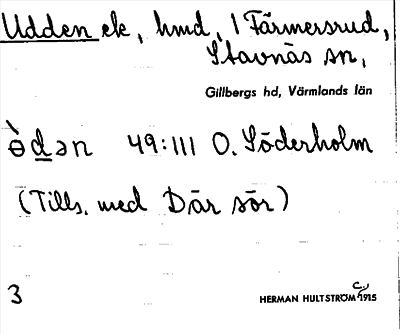 Udden ek, hmd, 1 Färmersrud,
Stavnäs sn,
Gillbergs hd, Värmlands län
ə̀dən 49:111 O. Söderholm
(Tills. med Där sör)
3
HERMAN HULTSTRÖM 1915